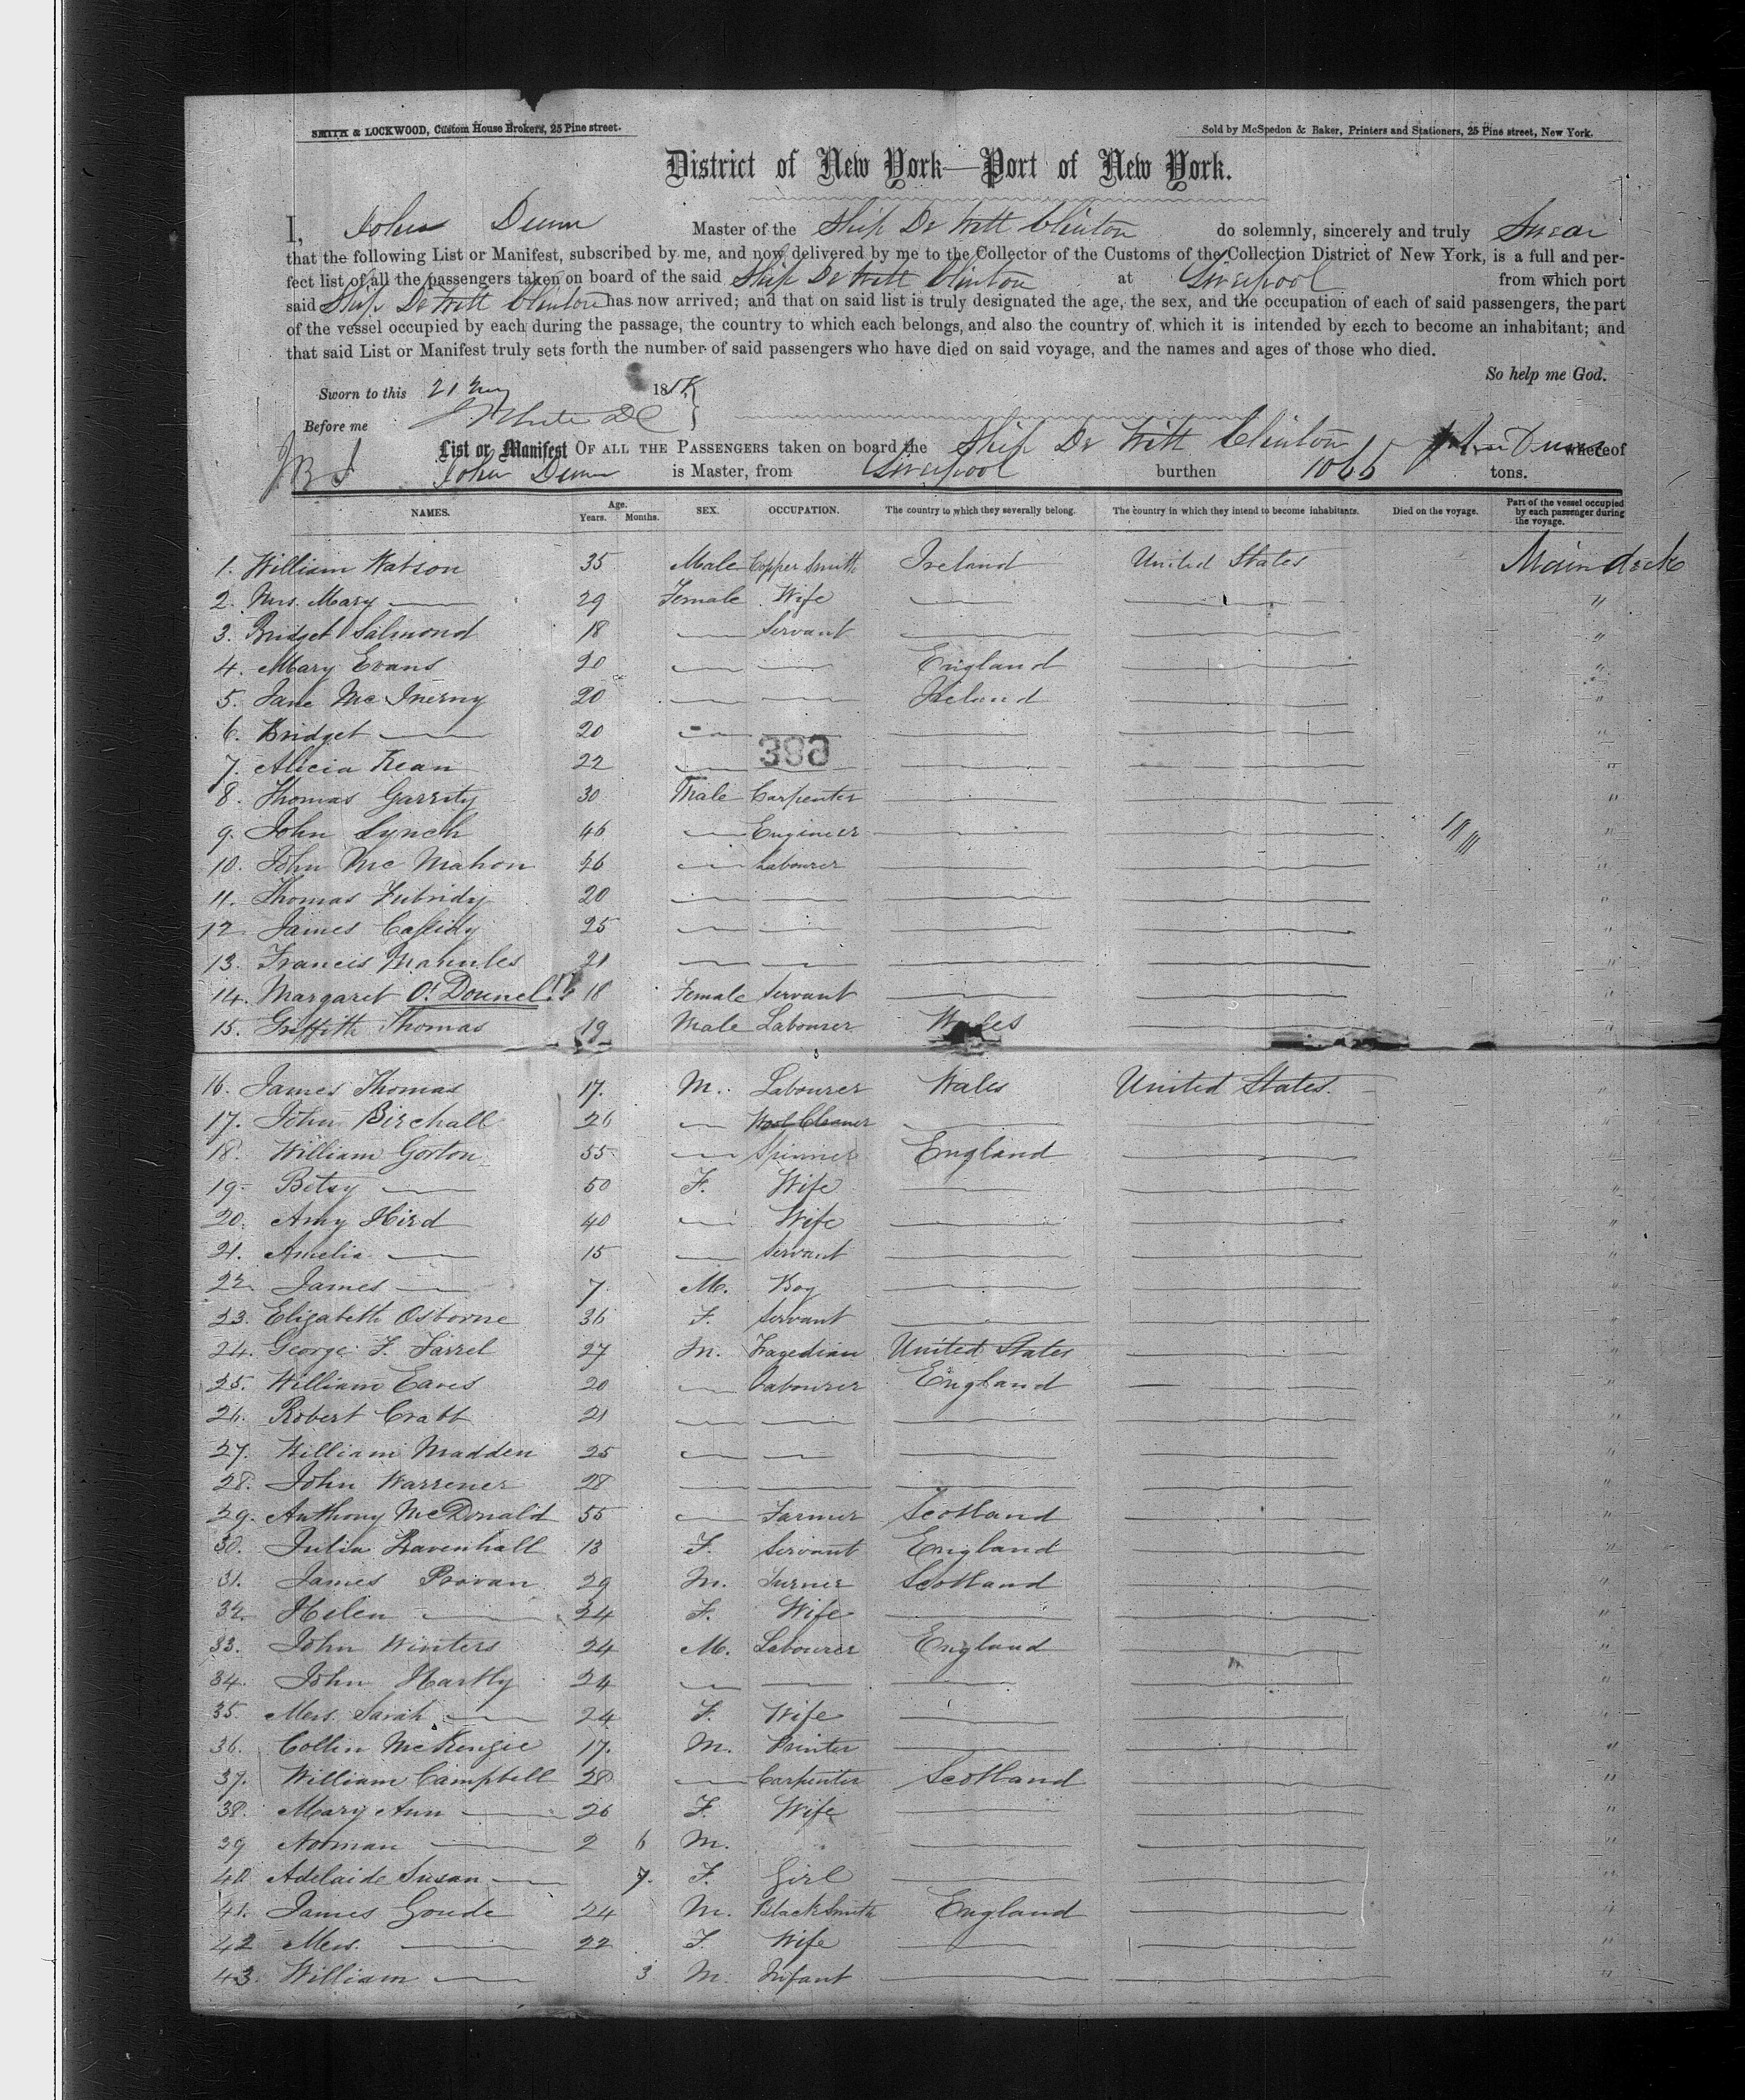 SMITH & LOCKWOOD, Custom House Brokers, 25 Pine street.
Sold by McSpedon & Baker, Printers and Stationers, 25 Pine street, New York.
District of New York—Port of New York.
I, John Dunn Master of the Ship De Witt Clinton do solemnly, sincerely and truly Swear
that the following List or Manifest, subscribed by me, and now delivered by me to the Collector of the Customs of the Collection District of New York, is a full and per-
fect list of all the passengers taken on board of the said Ship De Witt Clinton at Liverpool from which port
said Ship De Witt Clinton has now arrived; and that on said list is truly designated the age, the sex, and the occupation of each of said passengers, the part
of the vessel occupied by each during the passage, the country to which each belongs, and also the country of which it is intended by each to become an inhabitant; and
that said List or Manifest truly sets forth the number of said passengers who have died on said voyage, and the names and ages of those who died.
So help me God.
Sworn to this 21 18
Before me
List or Manifest OF ALL THE PASSENGERS taken on board the Ship De Witt Clinton John Dunn whereof
John Dunn is Master, from Liverpool burthen 1065 tons.
NAMES. Age. Years. Months. SEX. OCCUPATION. The country to which they severally belong. The country in which they intend to become inhabitants. Died on the voyage. Part of the vessel occupied by each passenger during the voyage.
1. William Watson 35 Male Copper Smith Ireland United States Main deck
2. Mrs. Mary — 29 Female Wife — — "
3. Bridget Salmond 18 — Servant — — "
4. Mary Evans 20 — — England — "
5. Jane McInerny 20 — — Ireland — "
6. Bridget — 20 — — — — "
398
7. Alicia Kean 22 — — — — "
8. Thomas Garrity 30 Male Carpenter — — "
9. John Lynch 46 — Engineer — — "
10. John McMahon 26 — Labourer — — "
11. Thomas Zubridy 20 — — — — "
12. James Cassidy 25 — — — — "
13. Francis 21 — — — — "
14. Margaret O'Donnell 18 Female Servant — — "
15. Griffith Thomas 19 Male Labourer Wales — "
16. James Thomas 17. M. Labourer Wales United States. "
17. John Birchall 26 — Wool Cleaner — —
18. William Gorton 55 — Spinner England — "
19. Betsy — 50 F. Wife — — "
20. Amy Hird 40 — Wife — — "
21. Amelia — 15 — Servant — — "
22 James — 7 M. Boy — — "
23. Elizabeth Osborne 36 F. Servant — — "
24. George F. Farrel 27 M. Tragedian United States — "
25. William Eaves 20 — Labourer England — "
26. Robert Crabb 21 — — — — "
27. William Madden 25 — — — — "
28. John Warrener 28 — — — — "
29. Anthony McDonald 55 — Farmer Scotland — "
30. Julia Ravenhall 13 F. Servant England — "
31. James Provan 29 M. Turner Scotland — "
32. Helen — 24 F. Wife — — "
33. John Winters 24 M. Labourer England — "
34. John Hartly 24 — — — — "
35. Mrs. Sarah — 24 F. Wife — — "
36. Collin McKenzie 17. M. Printer — — "
37. William Campbell 28 — Carpenter Scotland — "
38. Mary Ann — 26 F. Wife — — "
39 Norman — 2 6 M. — — "
40 Adelaide Susan — 7. F. Girl — — "
41. James Goude 24 M. Blacksmith England — "
42 Mrs. — 22 F. Wife — — "
43. William — 3 M. Infant — — "